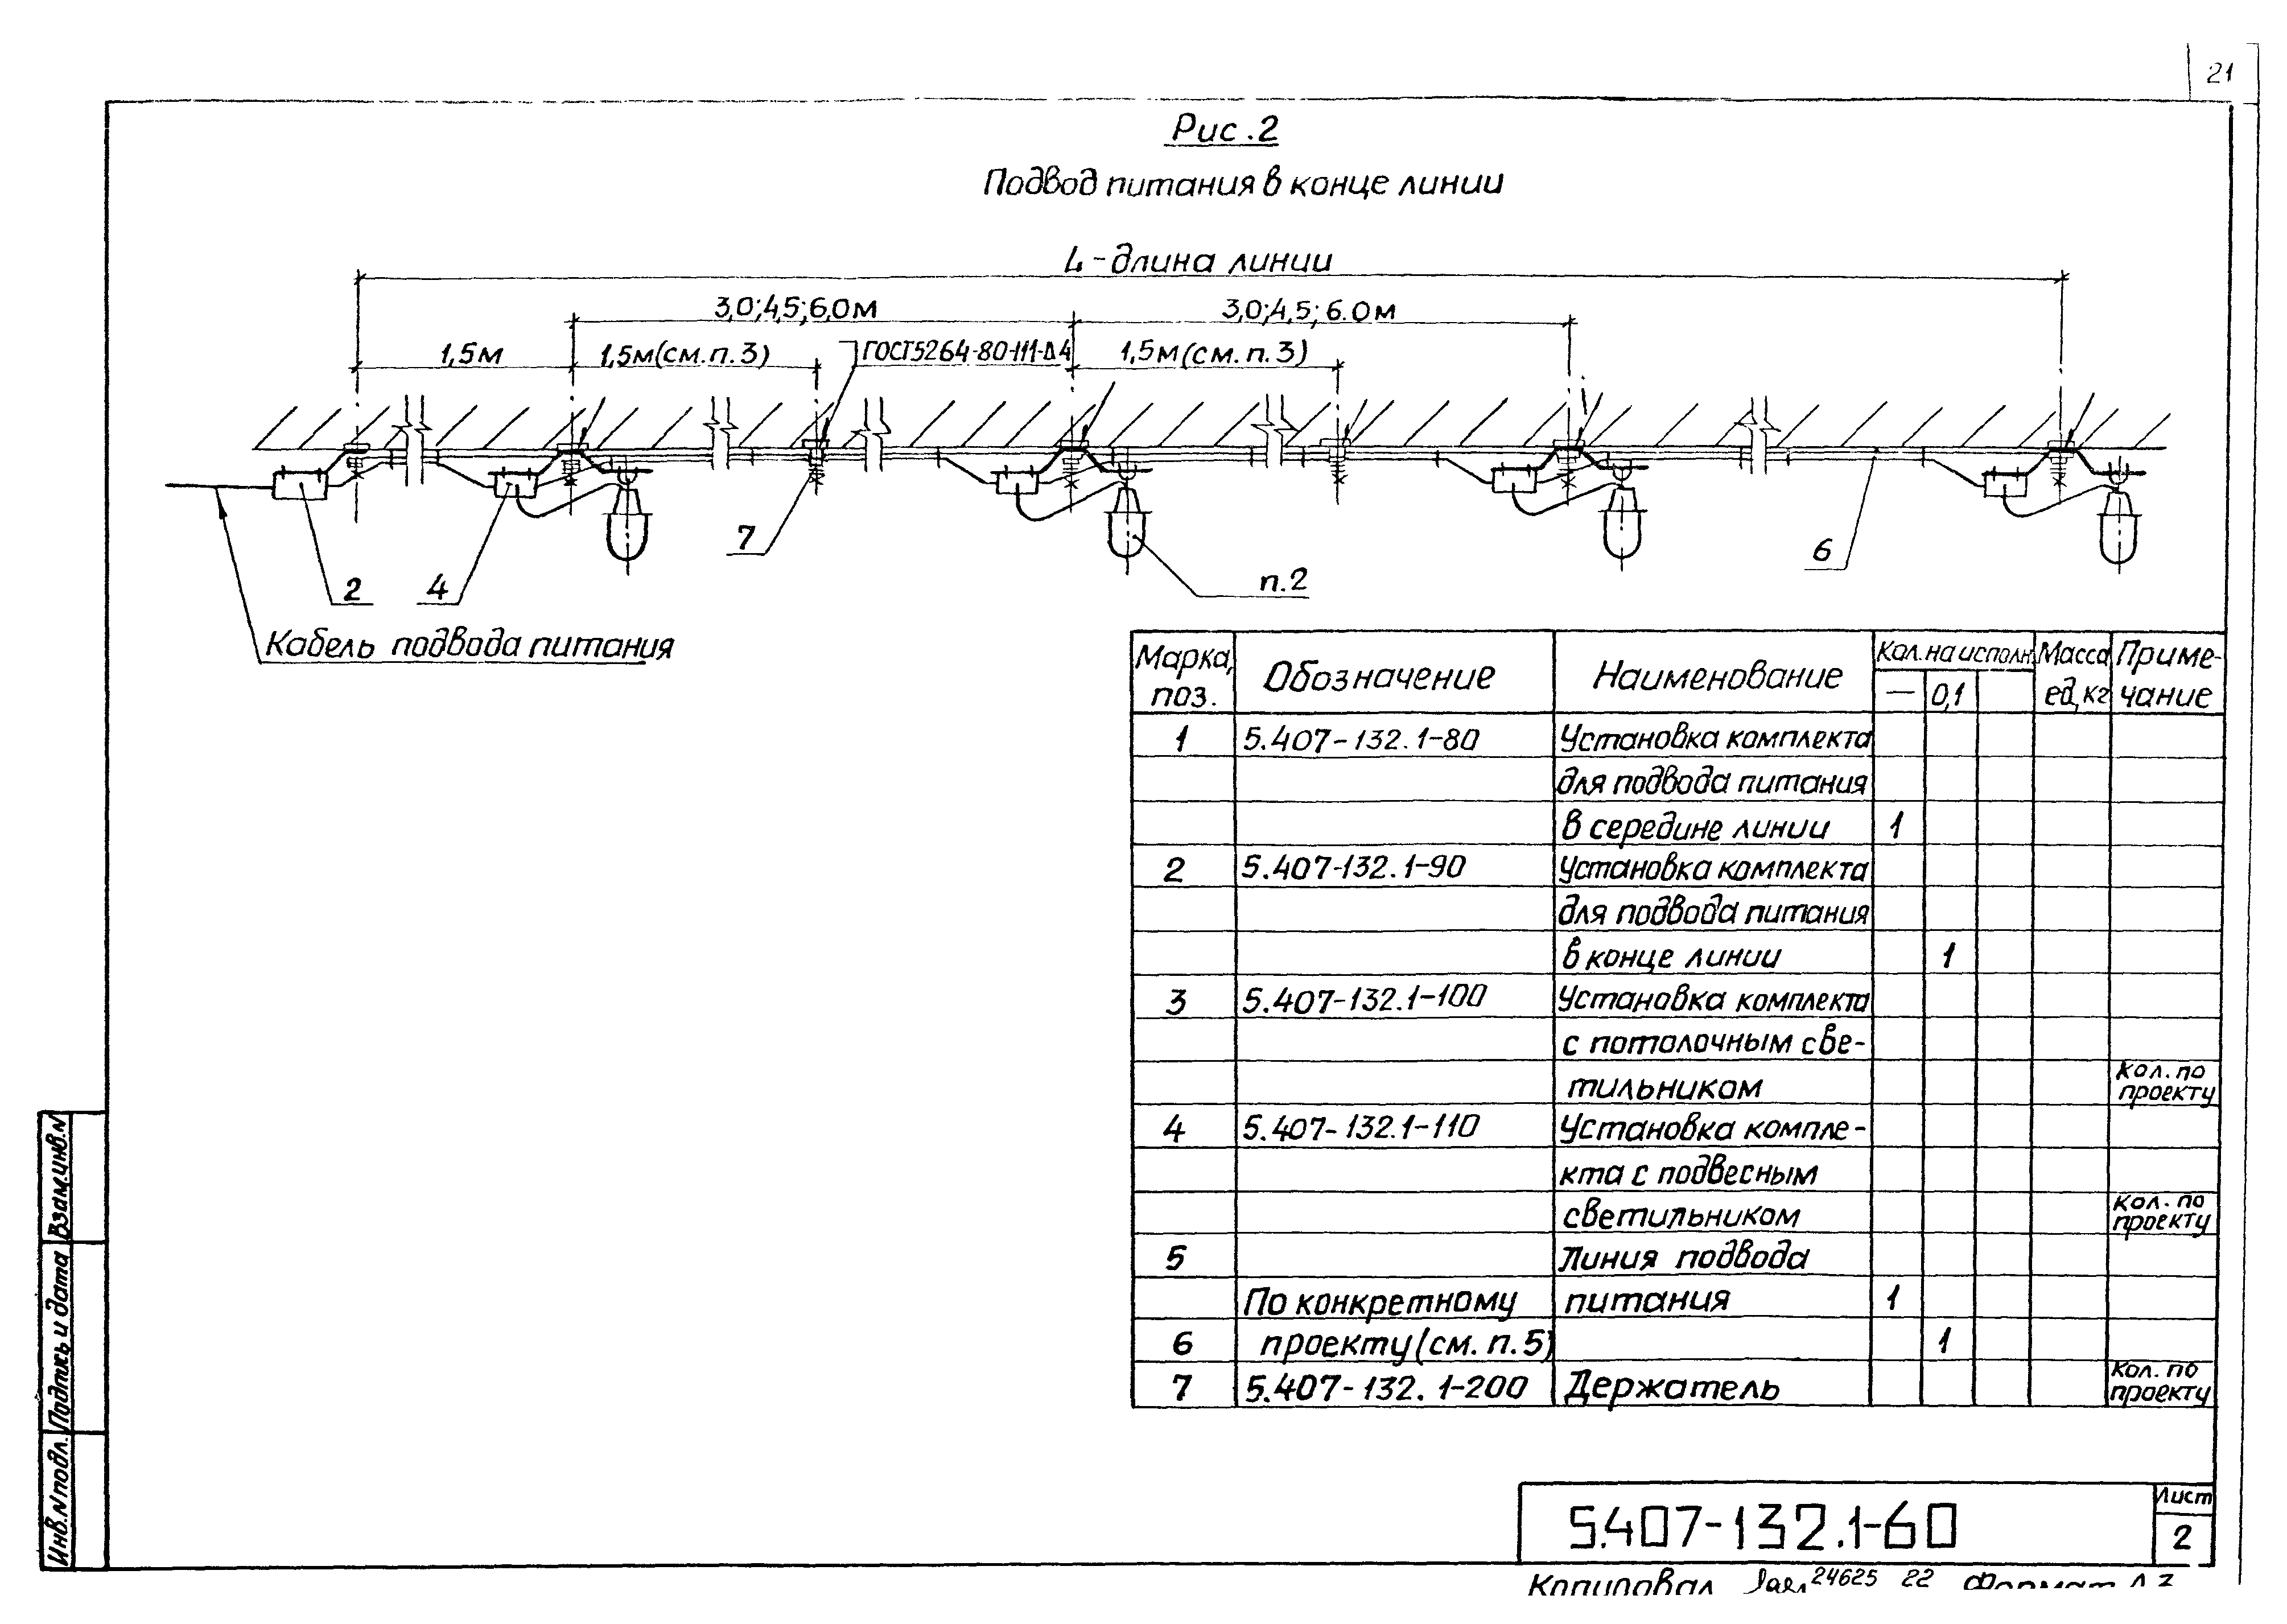 21
Рис.2
Подвод питания в конце линии
L-длина линии
3,0;4,5;6,0м
3,0;4,5;6.0м
1,5м
1,5м(см.п.3)
ГОСТ5264-80-Н1-Δ4
1,5м(см.п.3)
7
6
2
4
п.2
Кабель подвода питания
Марка, поз.
Обозначение
Наименование
Кол. на исполн.
Масса ед,кг
Примечание
— 0,1
1 5.407-132.1-80 Установка комплекта
для подвода питания
в середине линии 1
2 5.407-132.1-90 Установка комплекта
для подвода питания
в конце линии 1
3 5.407-132.1-100 Установка комплекта
с потолочным све-
тильником Кол. по проекту
4 5.407-132.1-110 Установка компле-
кта с подвесным
светильником Кол. по проекту
5 Линия подвода
По конкретному питания 1
6 проекту(см.п.5) 1
7 5.407-132.1-200 Держатель Кол. по проекту
Взам.инв.N
Подпись и дата
Инв.N подл.
5.407-132.1-60
Лист
2
Копировал 24625 22 Формат А3